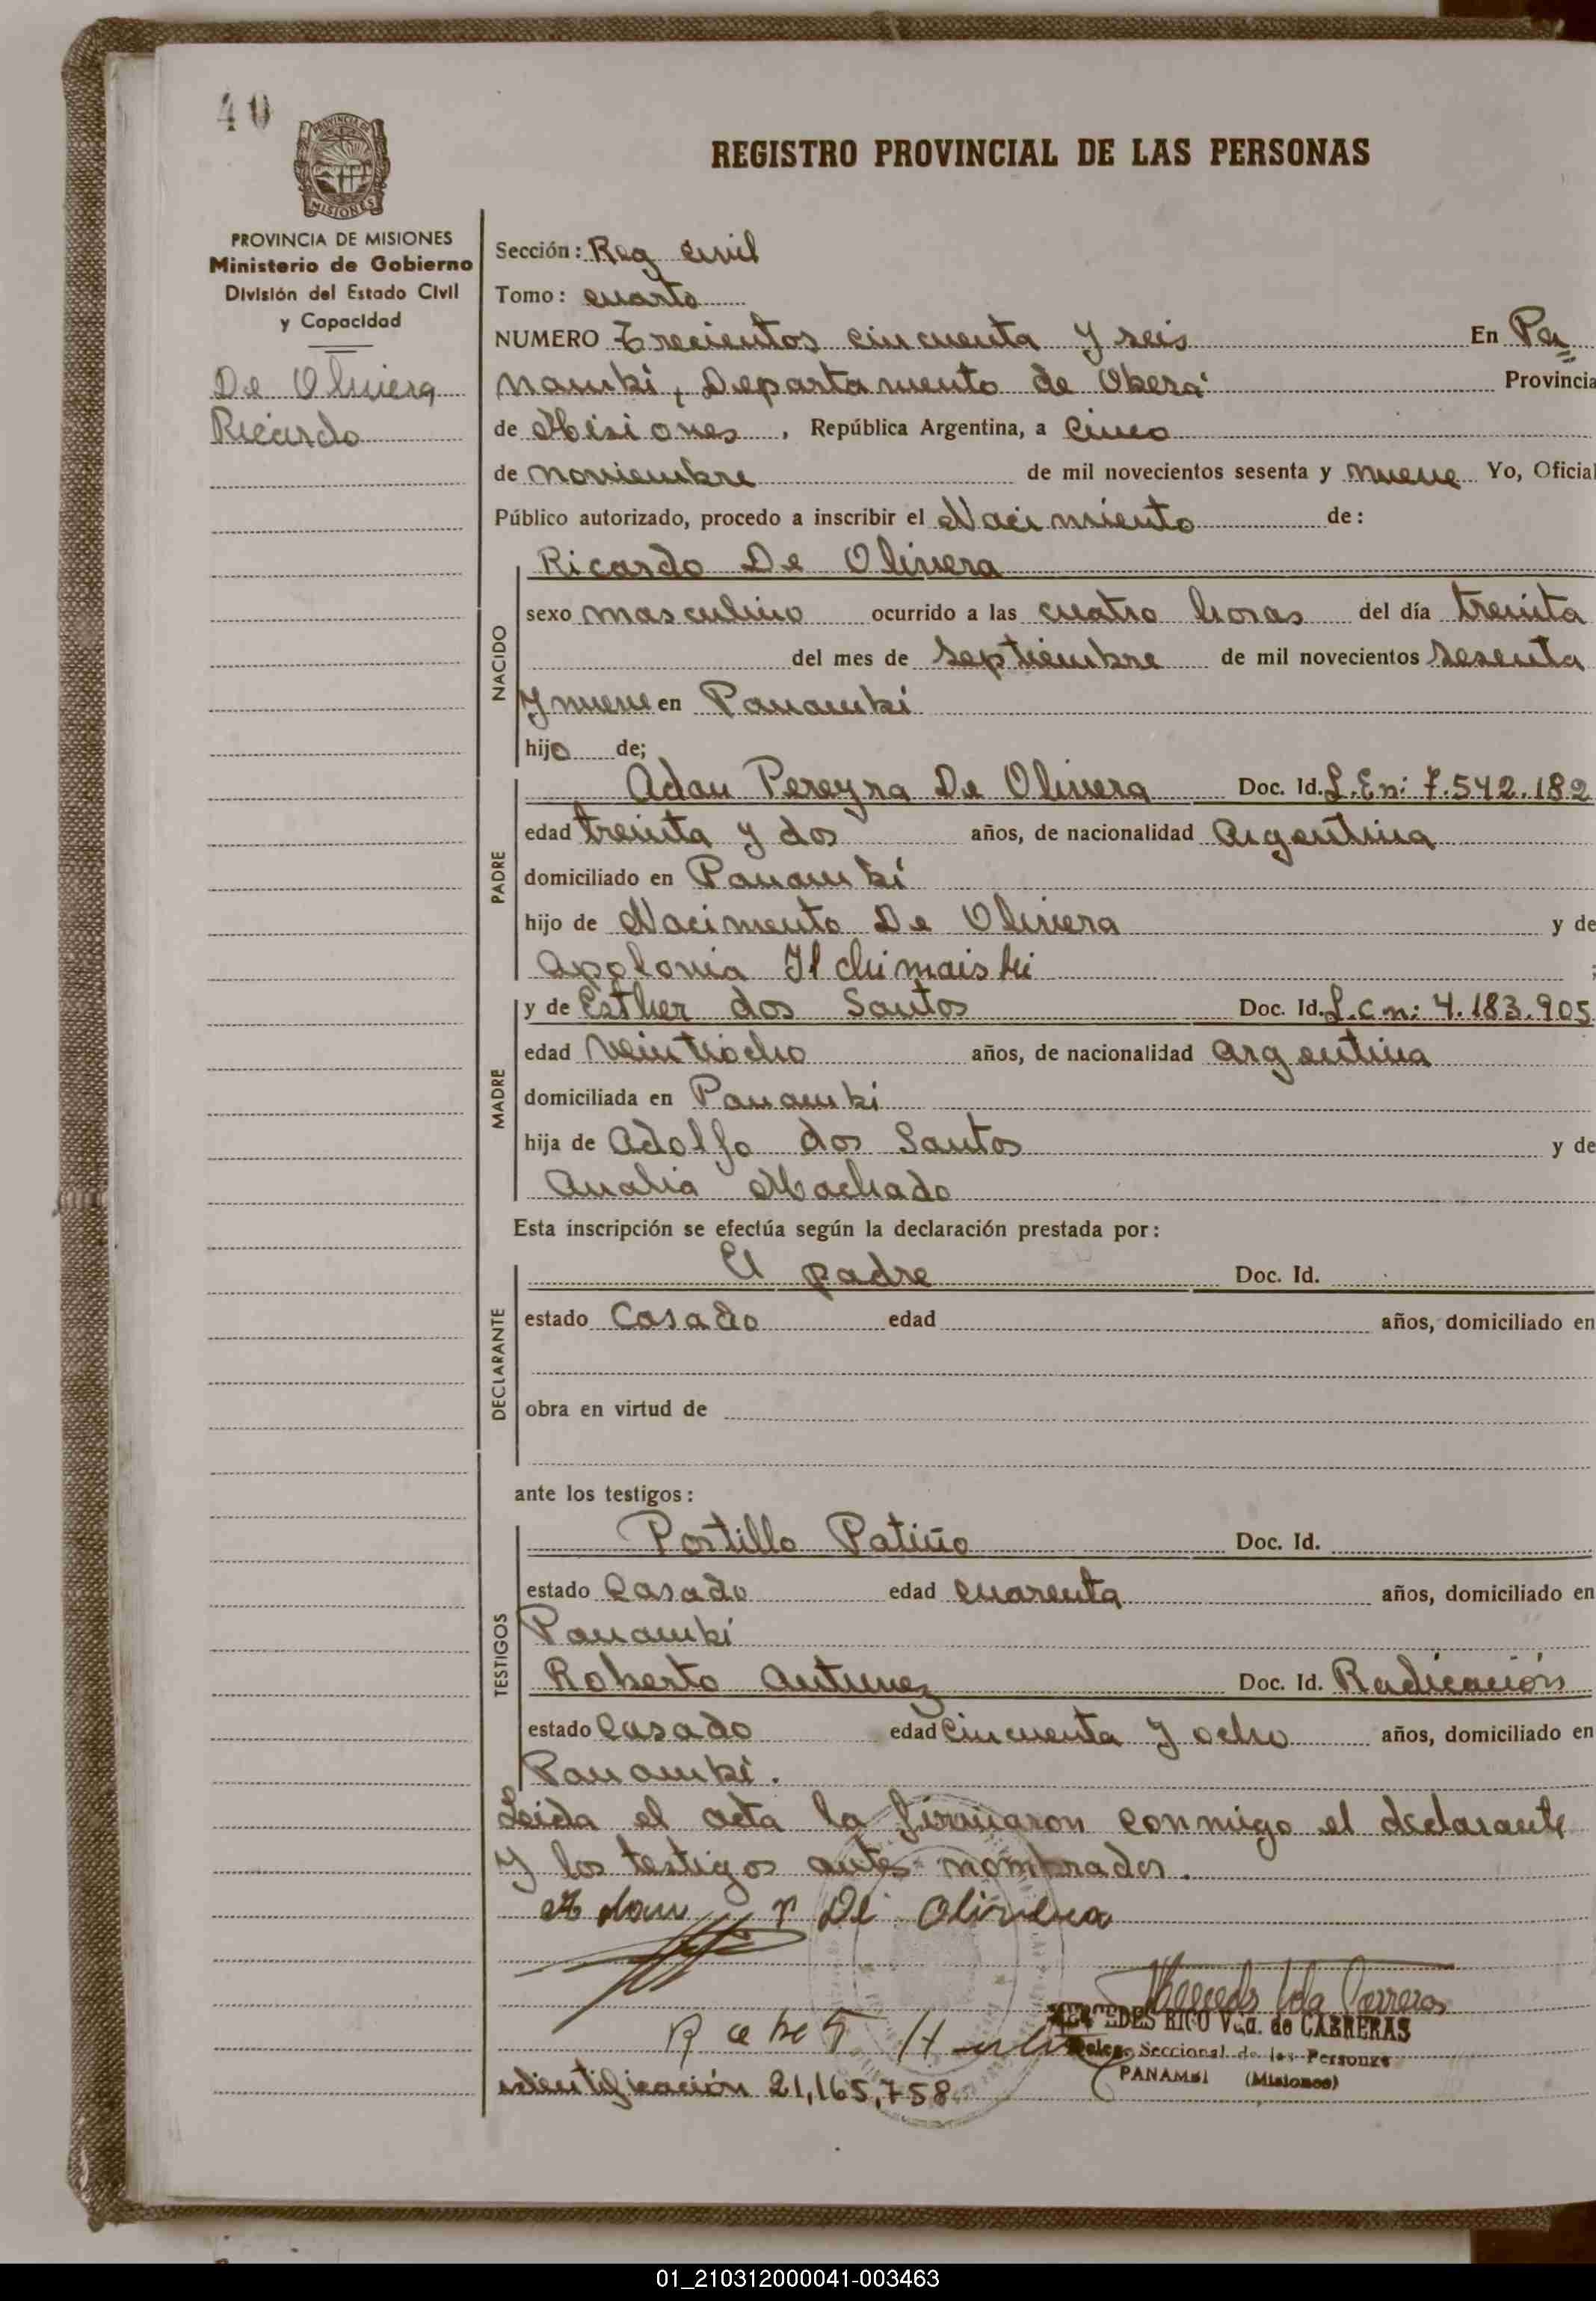 40
PROVINCIA DE MISIONES
Ministerio de Gobierno
División del Estado Civil
y Capacidad
De Olivera
Ricardo
REGISTRO PROVINCIAL DE LAS PERSONAS
Sección: Reg civil
Tomo: cuarto
NUMERO Trecientos cincuenta y seis En Pa
nambí, Departamento de Oberá Provincia
de Misiones, República Argentina, a Cinco
de noviembre de mil novecientos sesenta y nueve Yo, Oficial
Público autorizado, procedo a inscribir el Nacimiento de:
Ricardo De Olivera
NACIDO
sexo masculino ocurrido a las cuatro horas del día treinta
del mes de Septiembre de mil novecientos sesenta
y nueve en Panambí
hijo de;
PADRE
Adan Pereyra De Olivera Doc. Id. L.En: 7.542.182
edad treinta y dos años, de nacionalidad Argentina
domiciliado en Panambí
hijo de Nacimento De Olivera y de
Apolonia Ilchimaiski ;
MADRE
y de Esther dos Santos Doc. Id. L.C n: 4.183.905
edad veintiocho años, de nacionalidad argentina
domiciliada en Panambí
hija de Adolfo dos Santos y de
Analia Machado
Esta inscripción se efectúa según la declaración prestada por:
DECLARANTE
El padre Doc. Id.
estado Casado edad años, domiciliado en
obra en virtud de
ante los testigos:
TESTIGOS
Portillo Patiño Doc. Id.
estado Casado edad cuarenta años, domiciliado en
Panambí
Roberto Antunez Doc. Id. Radicación
estado Casado edad cincuenta y ocho años, domiciliado en
Panambí.
Leida el acta la firmaron conmigo el declarante
y los testigos antes nombrados.
Adan P De Olivera
MERCEDES RICO Vda. de CABRERAS
Seccional de las Personas
PANAMBI (Misiones)
identificación 21,165,758
01_210312000041-003463